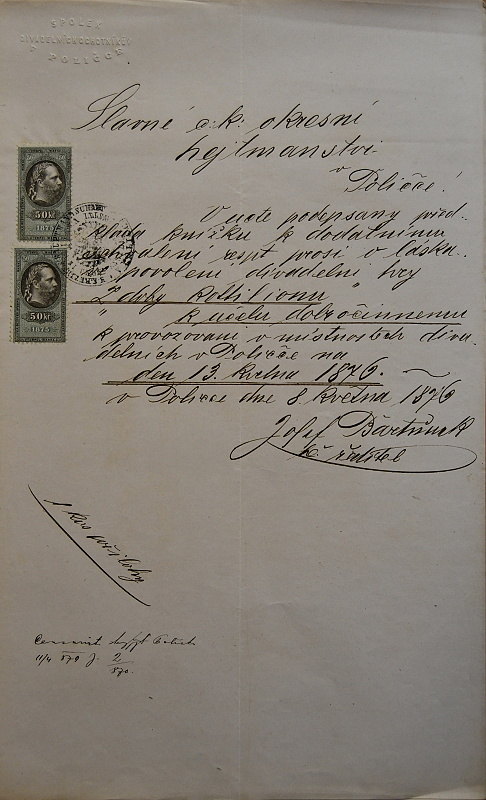 SPOLEK
DIVADELNÍCH OCHOTNÍKŮ
V POLIČCE
Slavné c. k. okresní
hejtmanství
v
Poličce!
50 kr
1875
50 kr
1875
V úctě podepsaný před-
kládá knížku k dodatnímu
schválení resp. prosí o láska.
povolení divadelní hry
"Z doby kotillionu"
k účelu dobročinnému
k provozování v místnostech diva-
delních v Poličce na
den 13. května 1876.
v Poličce dne 8. května 1876
Josef Bartůněk
ředitel
1 kus přílohy
11/4 870 j. 2
870.